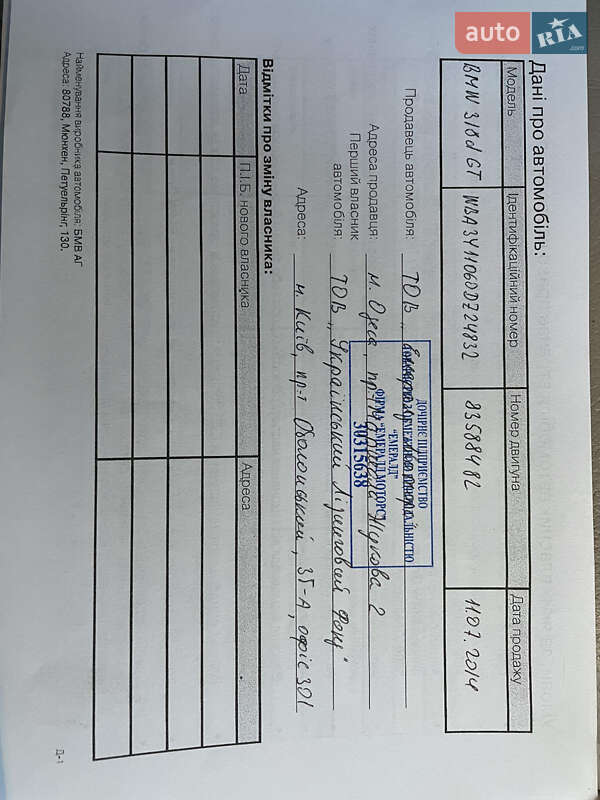 auto RIA.com
Дані про автомобіль:
Модель Ідентифікаційний номер Номер двигуна Дата продажу
BMW 318d GT WBA3Y11060D724832 83588482 11.07.2014
Продавець автомобіля: ТОВ „
Адреса продавця: м. Одеса, Жукова 2
Перший власник
автомобіля: ТОВ „Український Лізинговий Фонд"
Адреса: м. Київ, пр-т Оболонський, 35-А, офіс 301
ДОЧІРНЄ ПІДПРИЄМСТВО
"ЕМЕРАЛД"
ФІРМА "ЕМЕРАЛД МОТОРС"
30315638
Відмітки про зміну власника:
Дата П.І.Б. нового власника Адреса
Найменування виробника автомобіля: БМВ АГ
Адреса: 80788, Мюнхен, Петуельрінг, 130.
Д-1